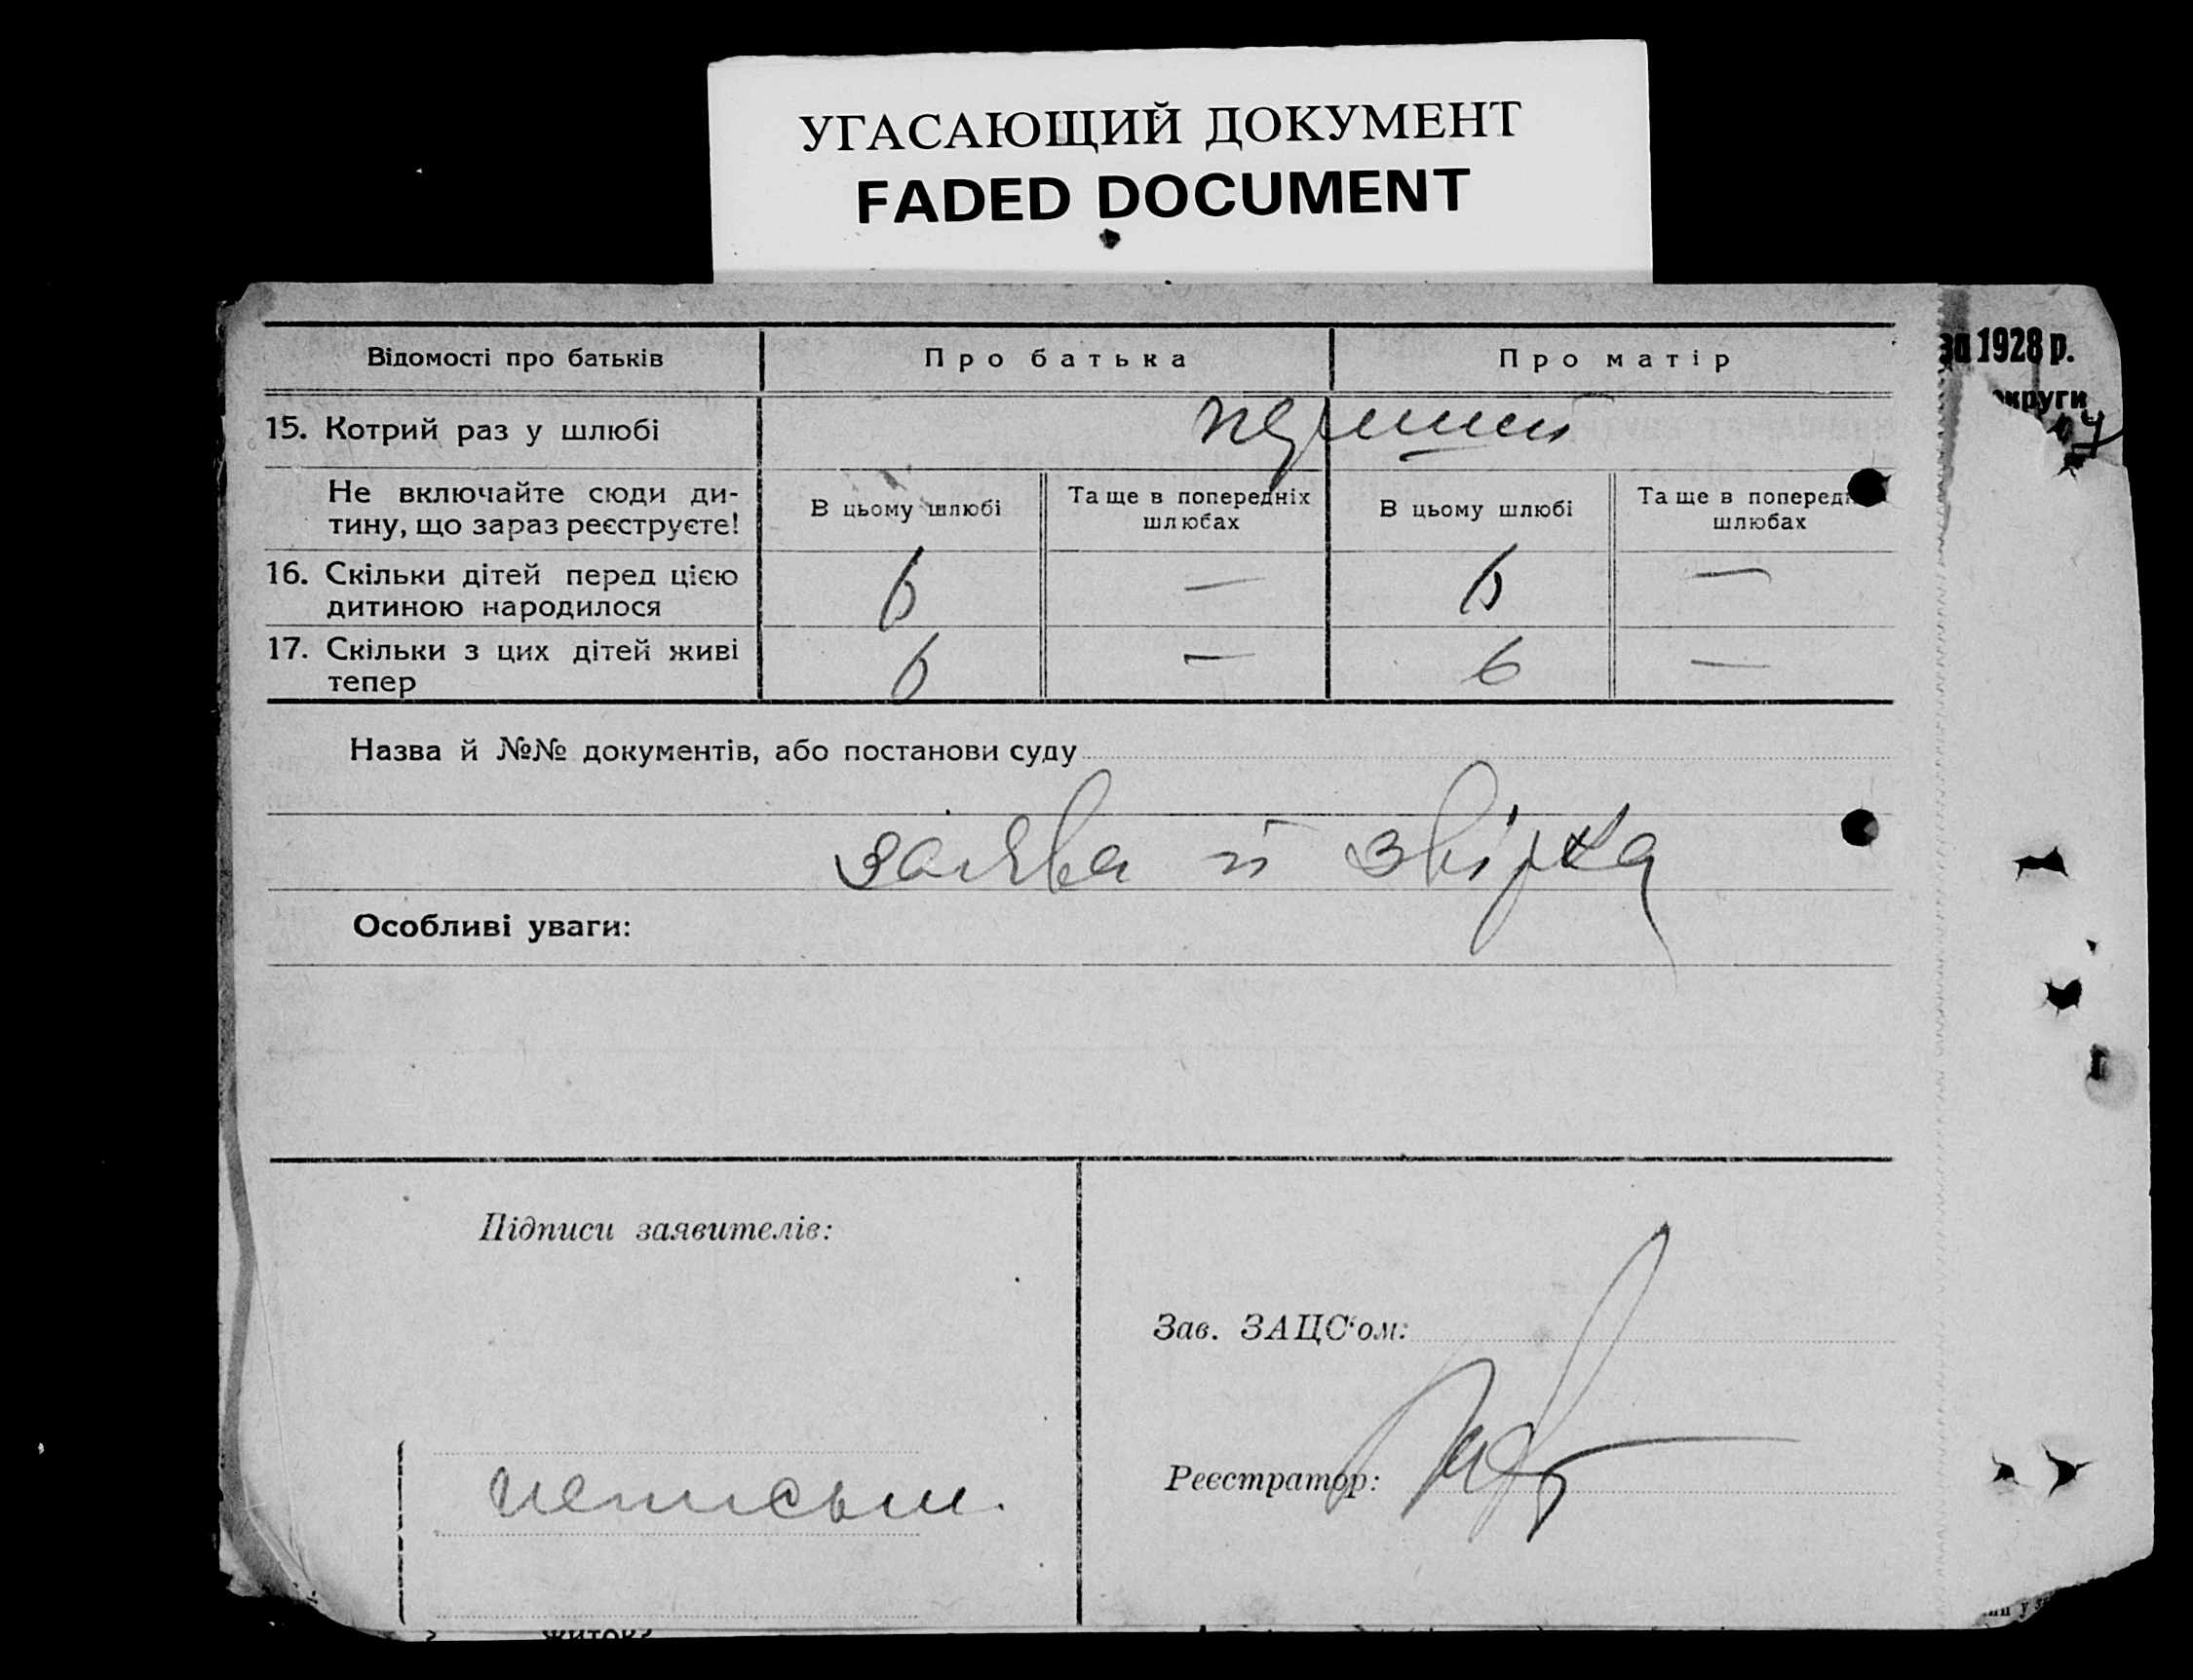 УГАСАЮЩИЙ ДОКУМЕНТ
FADED DOCUMENT
за 1928 р.
округи
Відомості про батьків
Про батька
Про матір
15. Котрий раз у шлюбі
перший
Не включайте сюди ди-
тину, що зараз реєструєте!
В цьому шлюбі
Та ще в попередніх
шлюбах
В цьому шлюбі
Та ще в поперед
шлюбах
16. Скільки дітей перед цією
дитиною народилося
6 — 6 —
17. Скільки з цих дітей живі
тепер
6 — 6 —
Назва й №№ документів, або постанови суду
заява й звірка
Особливі уваги:
Підписи заявителів:
Зав. ЗАЦС'ом:
Реєстратор:
неписьм.